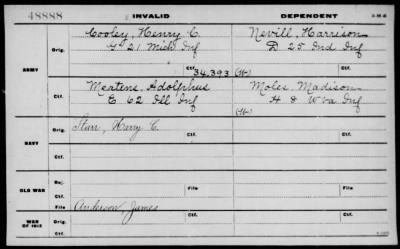 48888 INVALID DEPENDENT
ARMY
Orig.
Cooley, Henry C.
G 21 Mich Inf
Nevill, Harrison
D 25 Ind Inf
Ctf. 34.393 (W)
Ctf.
Mertens, Adolphus
C 62 Ill Inf
Moles, Madison
H 8 W Va Inf
(W)
NAVY
Orig.
Starr, Henry C.
Ctf.
Ctf.
OLD WAR
Rej.
Ctf.
File
File
WAR OF 1812
Orig.
Anderson, James
Ctf.
Ctf.